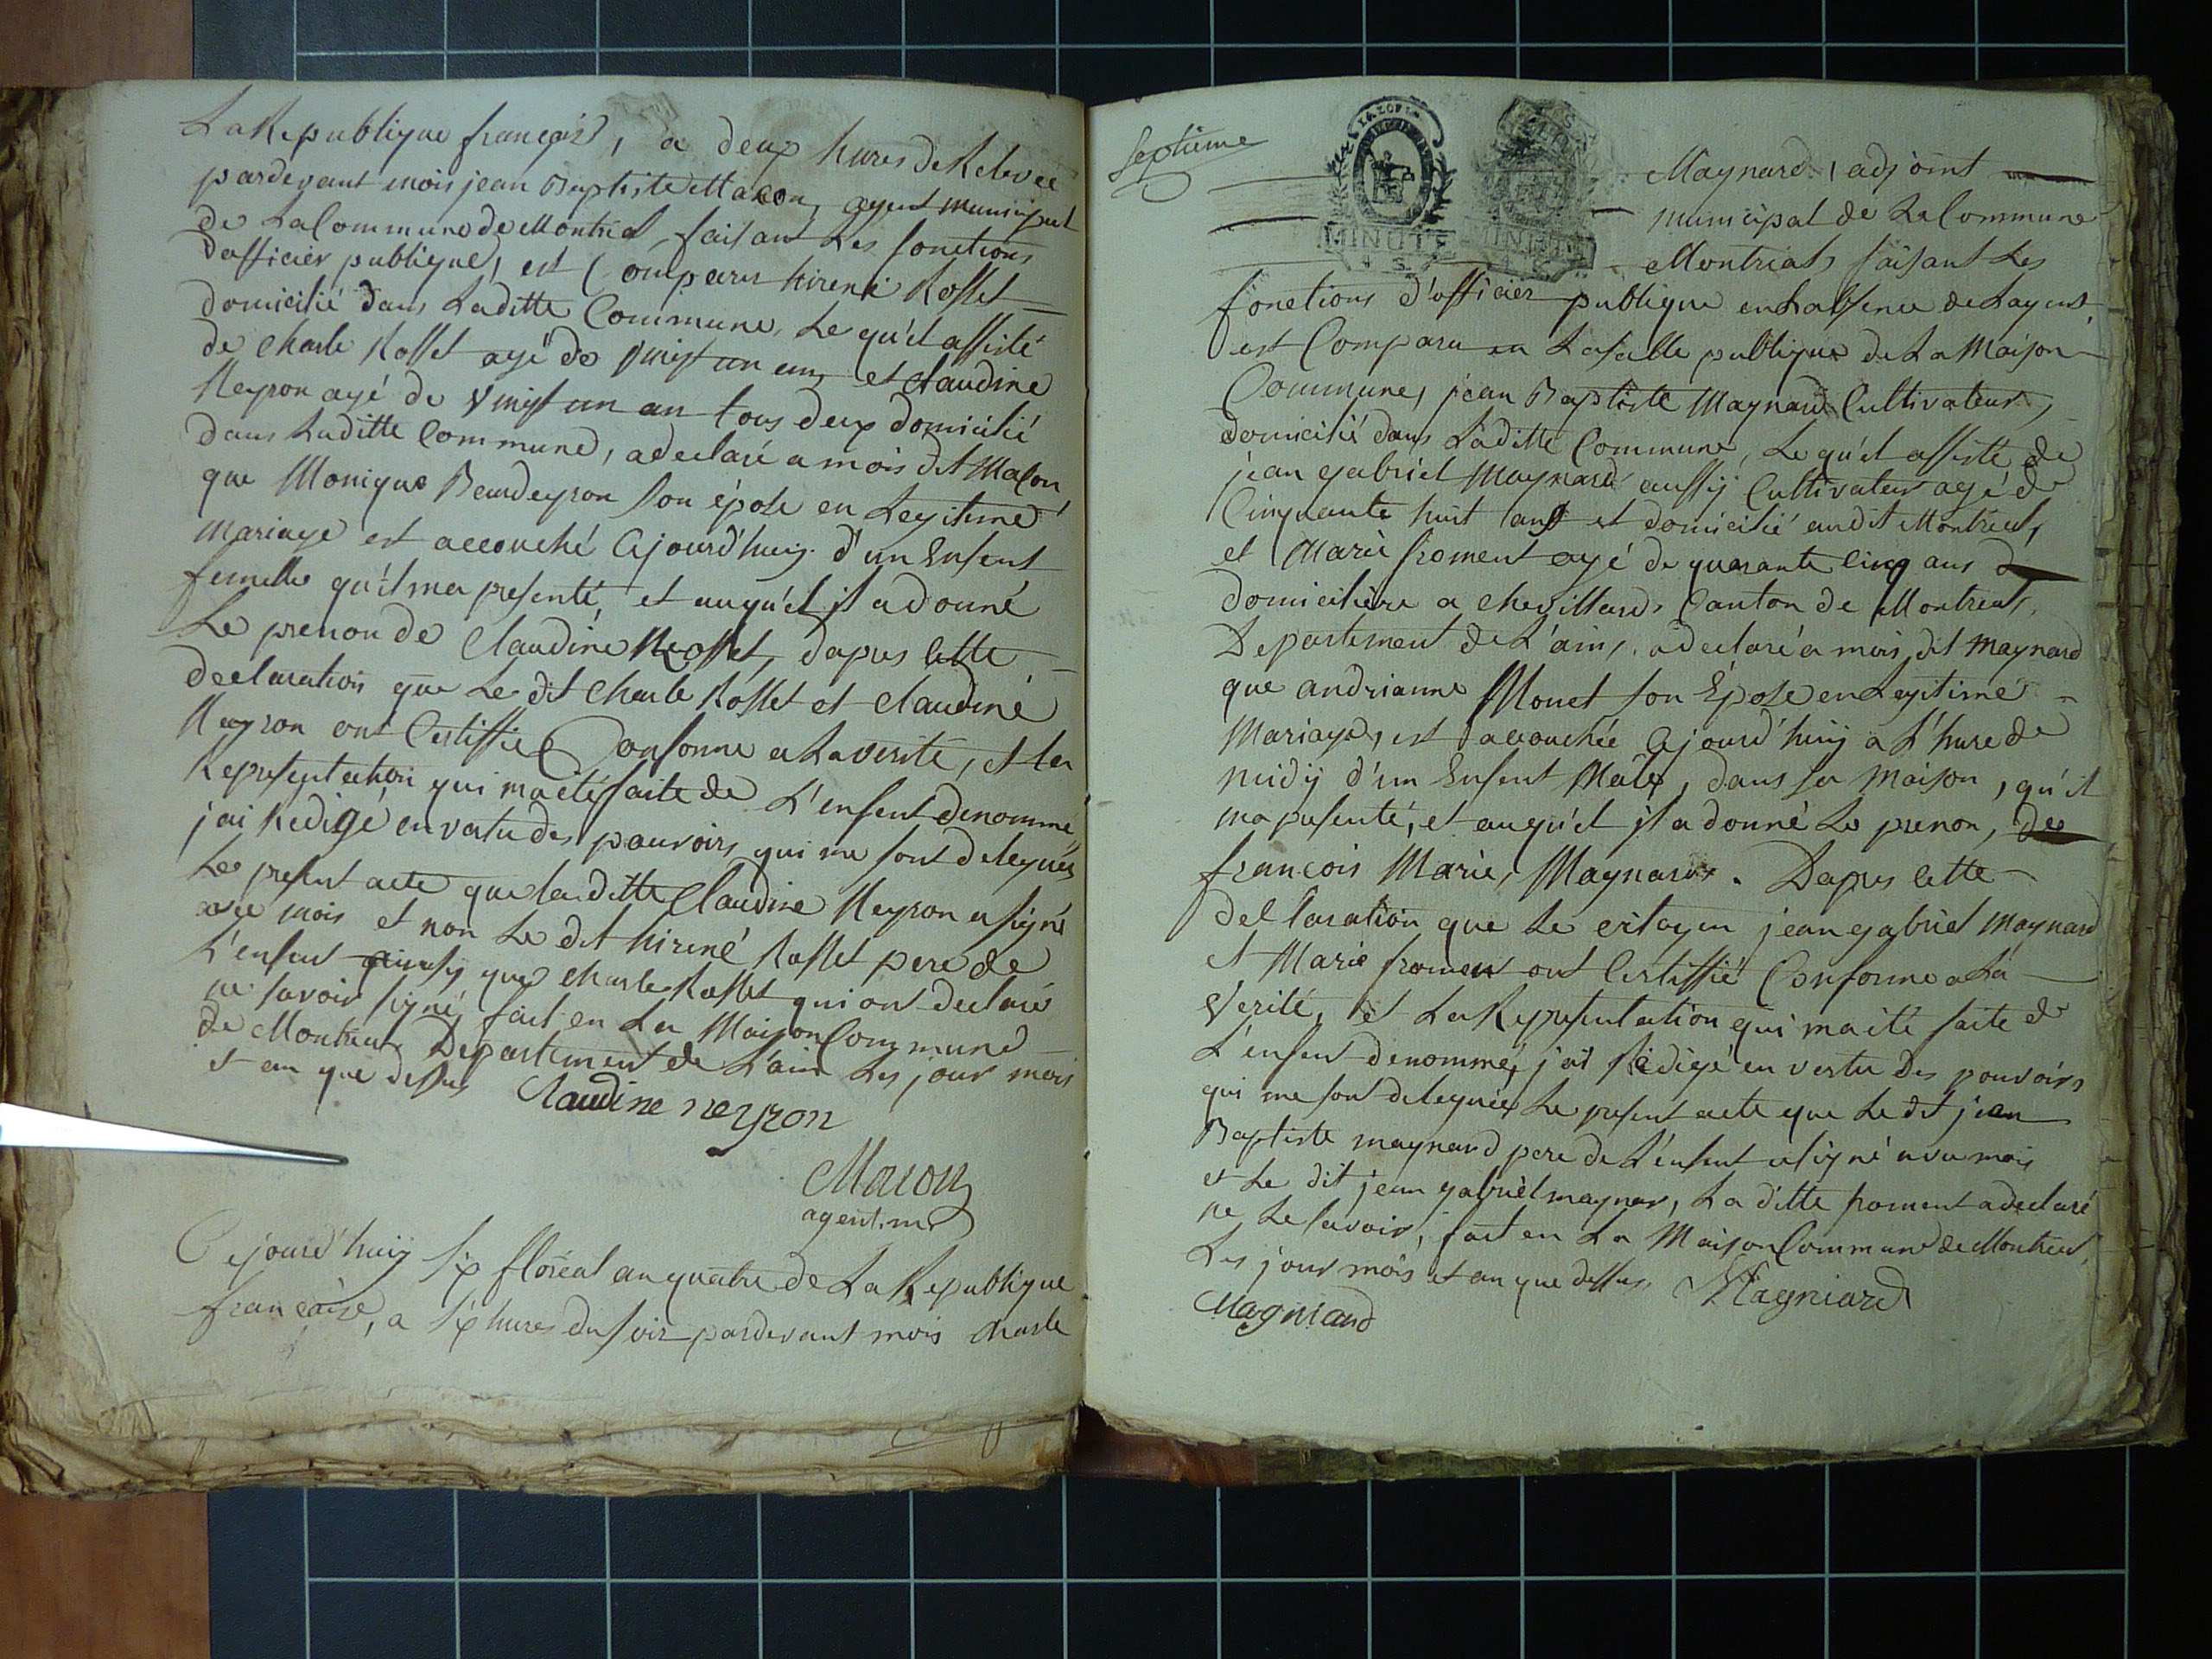 La Republique françoise, a deux hures de Relevée
pardevant mois jean Baptiste Macon, agent municipal
de La Commune de Montreal, faisant Les fonctions
dofficier publique, est Comparu hirené Rosset
domicilié dans Laditte Commune, Le qu'el assisté
de charle Rosset agé de vingt un ans et claudine
Neyron agé de vingt un an tous deux domicilié
dans Laditte Commune, a declaré a mois dit Macon,
que Monique son épose en Legitime
mariage est accouché Cejourd'huij d'un Enfent
femelle qu'il ma presenté, et auqu'el il a donné
Le prenon de Claudine Rosset, dapres Cette
declaration que Le dit charle Rosset et claudine
Neyron ont Certiffié Conforme a La verité, et La
Representation qui ma eté faite de L'enfent denommé
jai Redigé en vertu des pouvoirs qui me sont delegués
Le present acte que laditte Claudine Neyron a signé
avec mois et non Le dit hirené Rosset pere de
L'enfent ainsy que charle Rosset qui ont declaré
ne savoir signé, fait en La Maison Commune
de Montreal Departement de L'ain Les jour mois
et an que dessus
Claudine neyron
Macon
agent.m
Cejourd'huij six floréal an quatre de La Republique
francaise, a six hures du soir pardevant mois charle
Septieme
Maynard, adjoint
municipal de La Commune
Montreal, faisant Les
MINUTE
fonctions d'officier publique en Labsence de Lagent,
est Comparu en La salle publique de La Maison
Commune, jean Baptiste Maynard Cultivateur,
domicilié dans Laditte Commune, Le qu'el assisté de
jean gabriel Maynard aussij Cultivateur agé de
Cinquante huit ans et domicilié audit Montreal,
et Marie froment agé de quarante cinq ans
domiciliere a chevillard, Canton de Montreal,
Departement de L'ain, a declaré a mois dit Maynard
que andrianne Mouet son Épose en Legitime
Mariage, est accouchée Cejourd'huij a L'hure de
midij d'un Enfent Mâle, dans sa maison, qu'il
ma presenté, et auqu'el il a donné Le prenon, de
françois Marie, Maynard. Dapres Cette
declaration que Le citoyen jean gabriel Maynard
et Marie froment ont Certiffié Conforme a La
Verité, et La Representation qui ma eté faite de
L'enfent denommé, j'ai Redigé en vertu des pouvoirs
qui me sont delegués Le present acte que Le dit jean
Baptiste maynard pere de L'enfent a signé avec mois
et Le dit jean gabriel maynar, La ditte froment a declaré
ne Le savoir, fait en La Maison Commune de Montreal,
Les jour mois et an que dessus
Magniard
Magniard